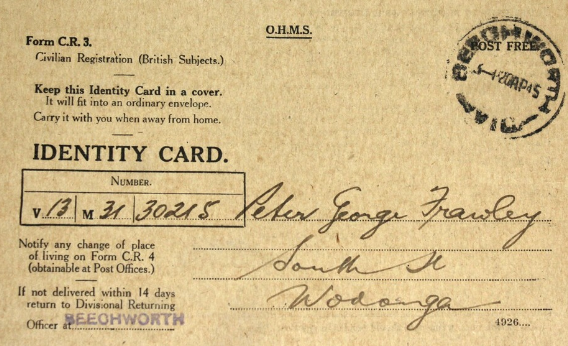 O.H.M.S.
Form C.R. 3.
Civilian Registration (British Subjects.)
POST FREE
BEECHWORTH
VIC
20AP45
Keep this Identity Card in a cover.
It will fit into an ordinary envelope.
Carry it with you when away from home.
IDENTITY CARD.
NUMBER.
V 13 M 31 30215
Peter George Frawley
Notify any change of place
of living on Form C.R. 4
(obtainable at Post Offices.)
South St
If not delivered within 14 days
return to Divisional Returning
Wodonga
Officer at BEECHWORTH
4926....